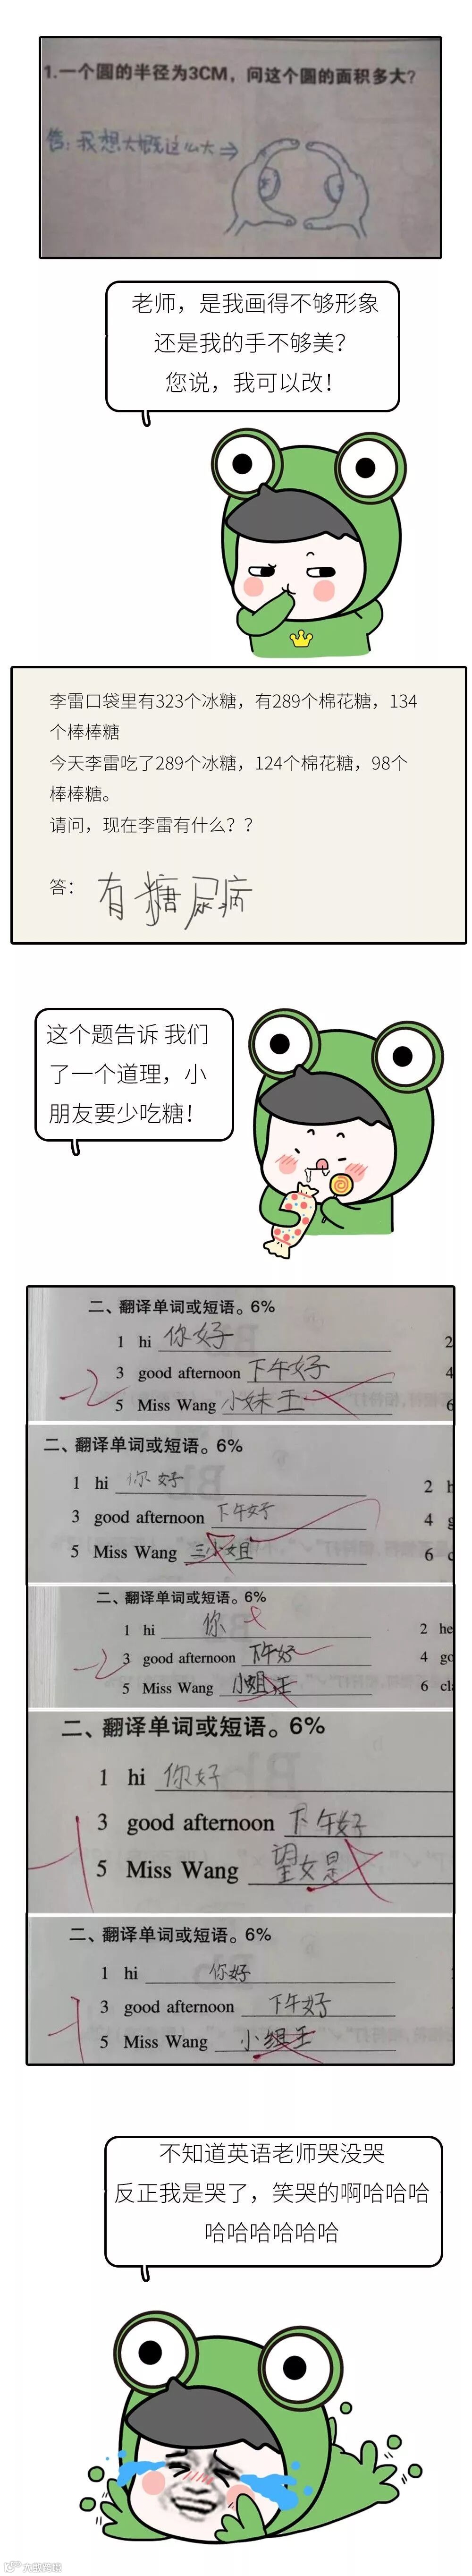 1.一个圆的半径为3CM，问这个圆的面积多大?
答：我想大概这么大→
老师，是我画得不够形象
还是我的手不够美?
您说，我可以改!
李雷口袋里有323个冰糖，有289个棉花糖，134
个棒棒糖
今天李雷吃了289个冰糖，124个棉花糖，98个
棒棒糖。
请问，现在李雷有什么？？
答： 有糖尿病
这个题告诉 我们
了一个道理，小
朋友要少吃糖!
二、翻译单词或短语。6%
1 hi 你好 2
3 good afternoon 下午好 4
5 Miss Wang 小妹王 6
二、翻译单词或短语。6%
1 hi 你好 2 h
3 good afternoon 下午好 4 g
5 Miss Wang 三小姐 6 c
二、翻译单词或短语。6%
1 hi 你 2 he
3 good afternoon 下午好 4 go
5 Miss Wang 小姐王 6 cl
二、翻译单词或短语。6%
1 hi 你好
3 good afternoon 下午好
5 Miss Wang 望女是
二、翻译单词或短语。6%
1 hi 你好
3 good afternoon 下午好
5 Miss Wang 小组王
不知道英语老师哭没哭
反正我是哭了，笑哭的啊哈哈哈
哈哈哈哈哈哈